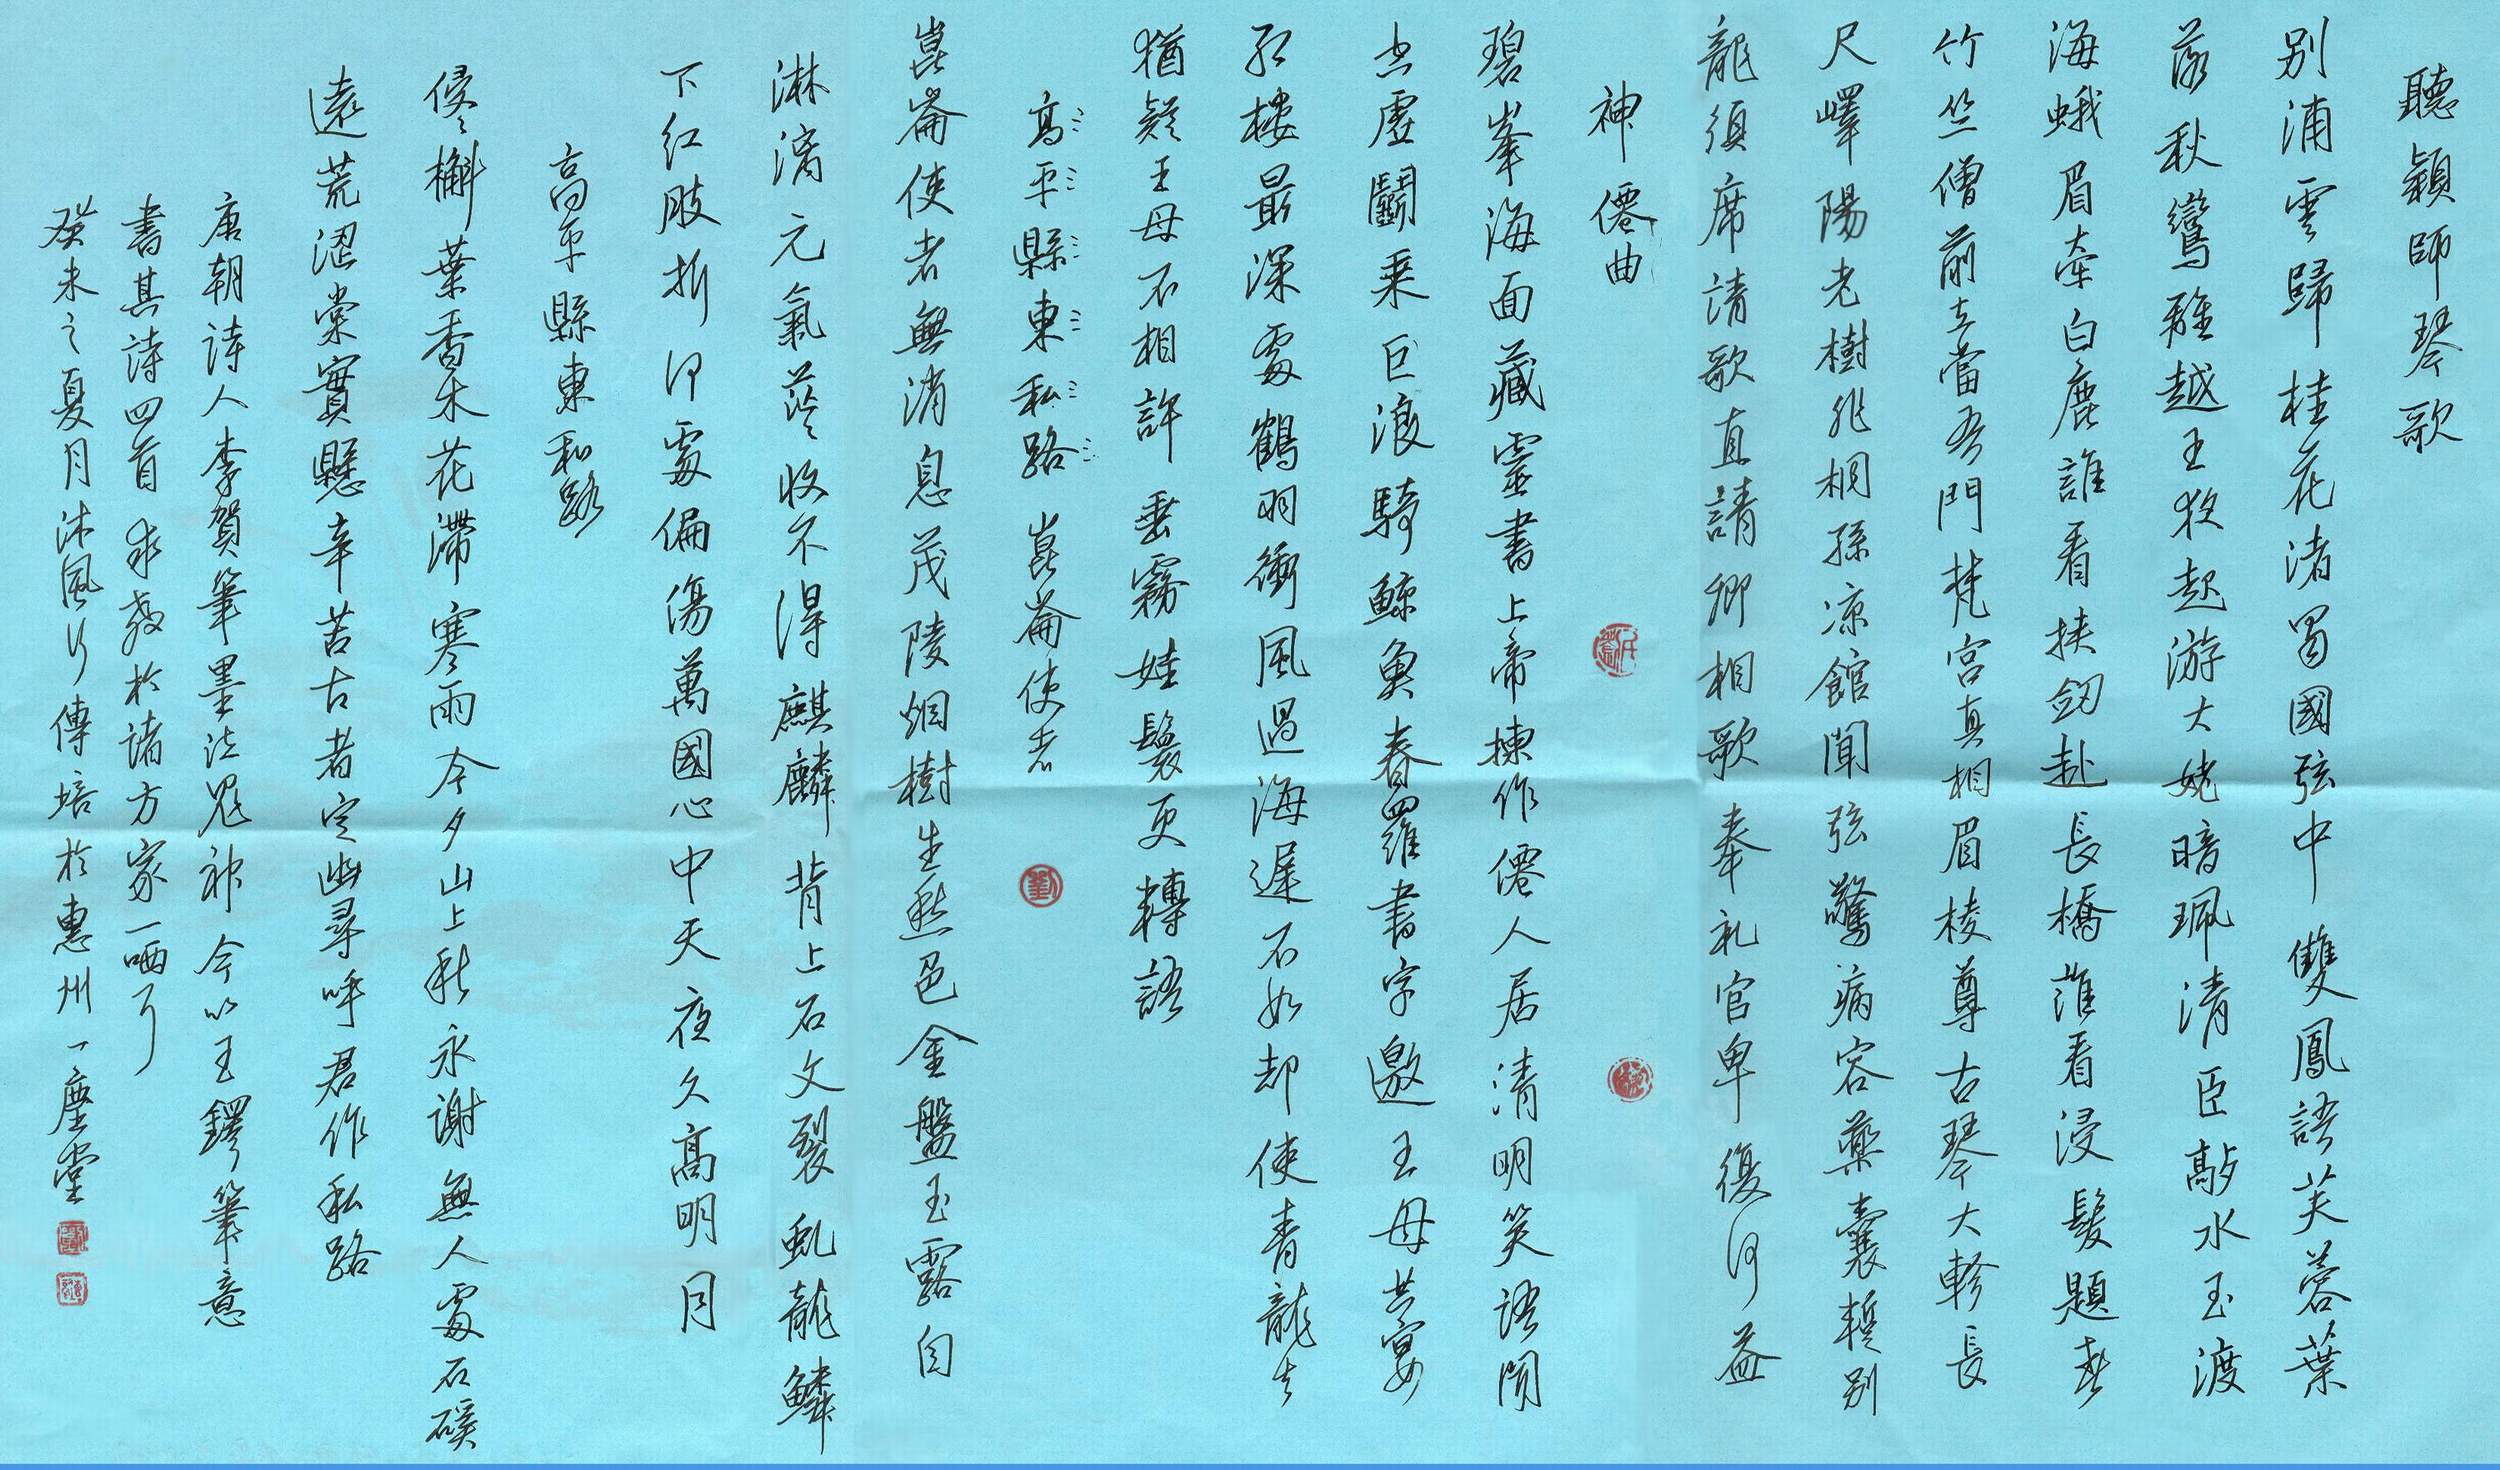 聽穎師琴歌
別浦雲歸桂花渚蜀國弦中雙鳳語芙蓉葉
落秋鸞離越王夜起游天姥暗珮清臣敲水玉渡
海蛾眉牽白鹿誰看挾劒赴長橋誰看浸髮題春
竹竺僧前立當吾門梵宮真相眉棱尊古琴大軫長
尺嶧陽老樹非桐孫涼館聞弦驚病客藥囊暫別
龍須席請歌直請卿相歌奉礼官卑復何益
神僊曲
碧峯海面藏靈書上帝揀作僊人居清明笑語聞
空虛鬭乘巨浪騎鯨魚春羅書字邀王母共宴
紅樓最深處鶴羽衝風過海遲不如却使青龍去
猶疑王母不相許垂霧娃鬟更轉語
高平縣東私路 崑崙使者
崑崙使者無消息茂陵烟樹生愁色金盤玉露自
淋漓元氣茫々收不得麒麟背上石文裂虬龍鱗
下紅肢折何處偏傷萬國心中天夜久高明月
高平縣東私路
侵々槲葉香木花滯寒雨今夕山上秋永謝無人處石磎
遠荒澀棠實懸辛苦古者定幽尋呼君作私路
唐朝詩人李賀筆墨泣鬼神今以王鐸筆意
書其詩四首求教於諸方家一哂耳
癸未之夏月沐風行傳培於惠州一塵堂